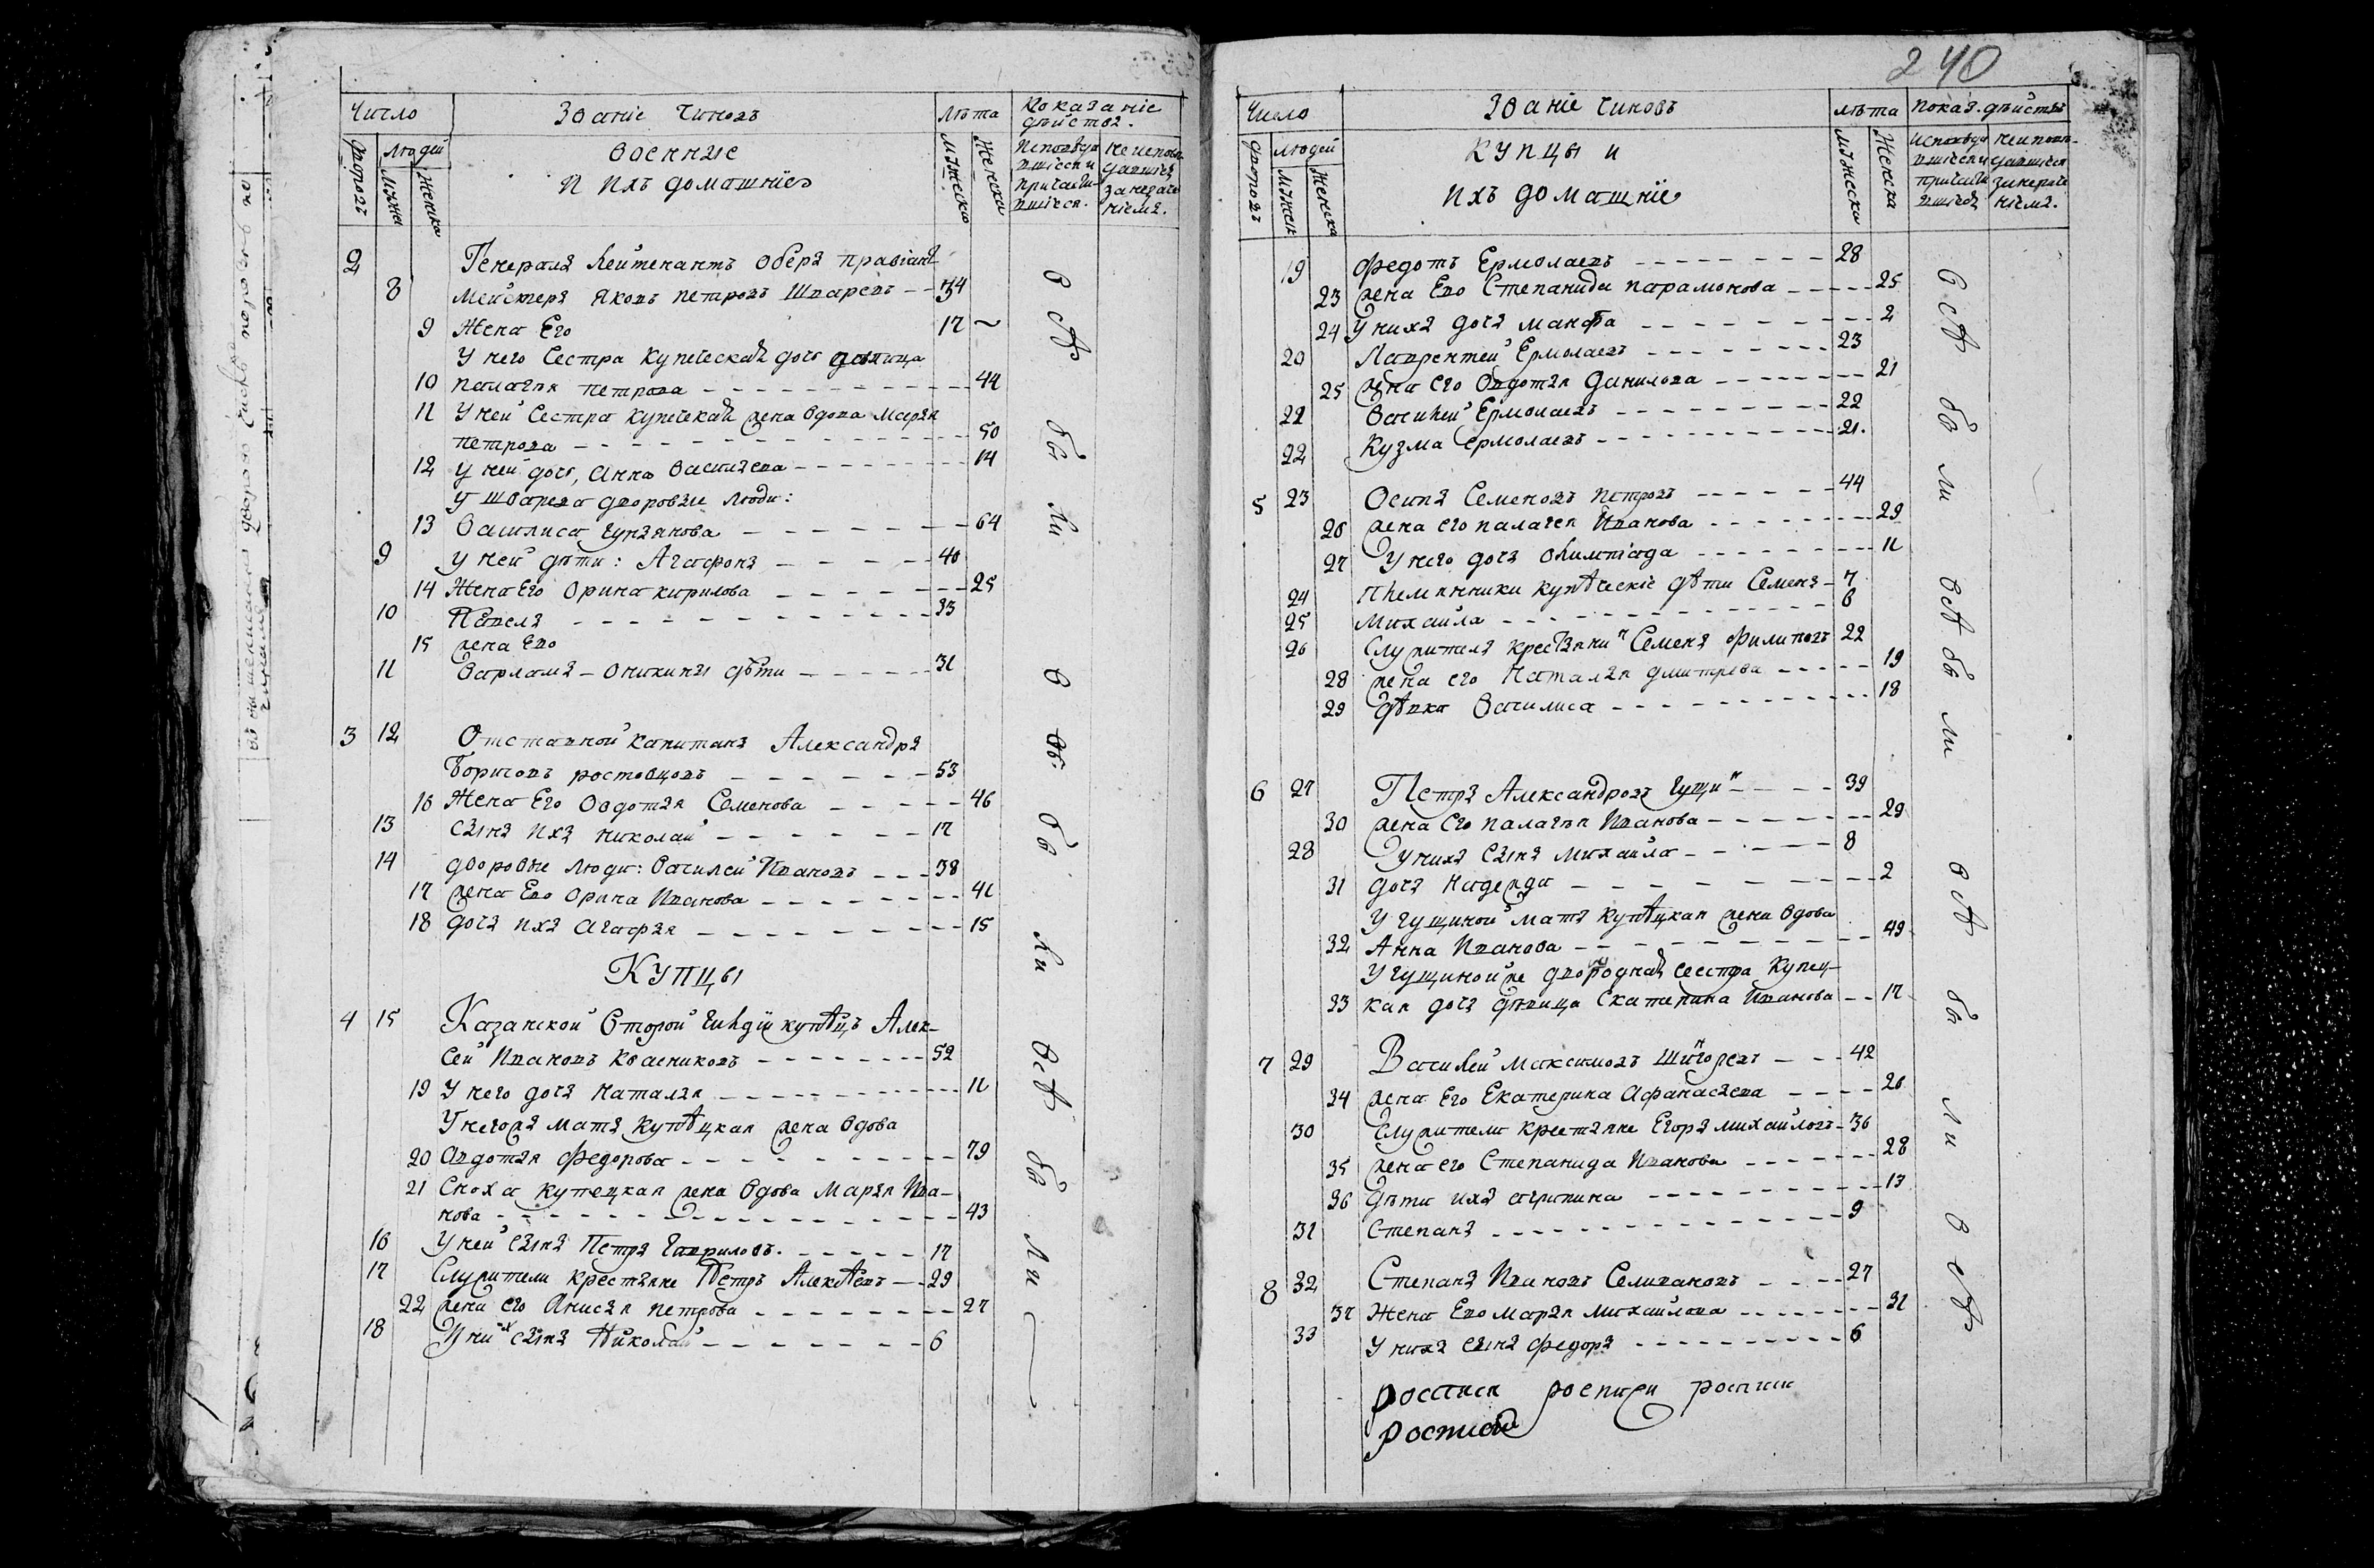 Число Званіе Чиновъ лѣта Показаніе дѣйства.
дворовъ людей Военные мужеска женска Исповѣдавшіеся и причастившіеся. неисповѣдавшіеся за нераченіемъ.
мужеска женска и ихъ домашніе
2 Генералъ Лейтенантъ Оберъ правіантъ
8 мейстеръ Яковъ петровъ Шваревъ 34
9 Жена Его 17
У него Сестра купеческая дочь дѣвица
10 палагея петрова 44
11 У ней Сестра купеческая жена вдова Марья
петрова 50
12 У ней дочь, Анна Васильева 14
У Шварева дворовые люди:
13 Василиса 64
9 У ней дѣти: Агафонъ 40
14 Жена Его Орина кирилова 25
10 Павелъ 33
15 жена Ево
11 Варламъ – Оникины дѣти 31
3 12 Отставной капитанъ Александръ
Борисовъ ростовцовъ 53
16 Жена Его Овдотья Семенова 46
13 Сынъ ихъ николай 17
14 дворовые люди: Василей Ивановъ 38
17 жена Ево Орина Иванова 41
18 дочь ихъ Агафья 15
Купцы
4 15 Казанской Второй Гилдіи купѣцъ Алек-
сей Ивановъ Квасниковъ 52
19 У него дочь Наталья 11
У негожъ мать купѣцкая жена вдова
20 Авдотья Федорова 79
21 Сноха купецкая жена вдова Марья Ива-
нова 43
16 У ней сынъ Петръ Гавриловъ. 17
17 Служители крестьяне Петръ Алексѣевъ 29
22 жена его Анисья петрова 27
18 У нихъ сынъ Николай 6
всѣ
были
всѣ
были
240
Число Званіе Чиновъ лѣта Показ. дѣйства
дворовъ людей купцы и мужеска женска
мужеска женска ихъ домашніе
19 Федотъ Ермолаевъ 28
23 жена Ево Степанида парамонова 25
24 У нихъ дочь марфа 2
20 Лаврентей Ермолаевъ 23
25 жена его Овдотья Данилова 21
21 Василей Ермолаевъ 22
22 Кузма Ермолаевъ 21.
5 23 Осипъ Семеновъ петровъ 44
26 жена его палагея Иванова 29
27 У него дочь Олимпіада 11
24 Племянники купѣческіе дѣти Семенъ 7
25 Михаила 6
26 Служитель крестьянинъ Семенъ Филиповъ 22
28 жена его Наталья дмитрева 19
29 дѣвка Василиса 18
6 27 Петръ Александровъ Гущинъ 39
30 жена его палагея Иванова 29
28 У нихъ сынъ Михаила 8
31 дочь Надежда 2
У Гущиной мать купѣцкая жена вдова
32 Анна Иванова 49
У Гущиной же двородная сестра Купец-
33 кая дочь дѣвица Екатерина Иванова 17
7 29 Василей Максимовъ Шингоревъ 42
34 жена Его Екатерина Афанасьева 26
30 Служители крестьяне Егоръ михаиловъ 36
35 жена его Степанида Иванова 28
36 Дѣти ихъ агрипина 13
31 Степанъ 9
8 32 Степанъ Ивановъ Селивановъ 27
37 Жена Ево марья михаилова 31
33 У нихъ сынъ Федоръ 6
всѣ были
всѣ были
всѣ
были
всѣ